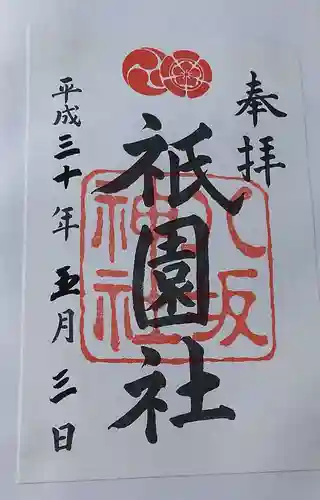 奉拝
祇園社
八坂
神社
平成三十年五月三日